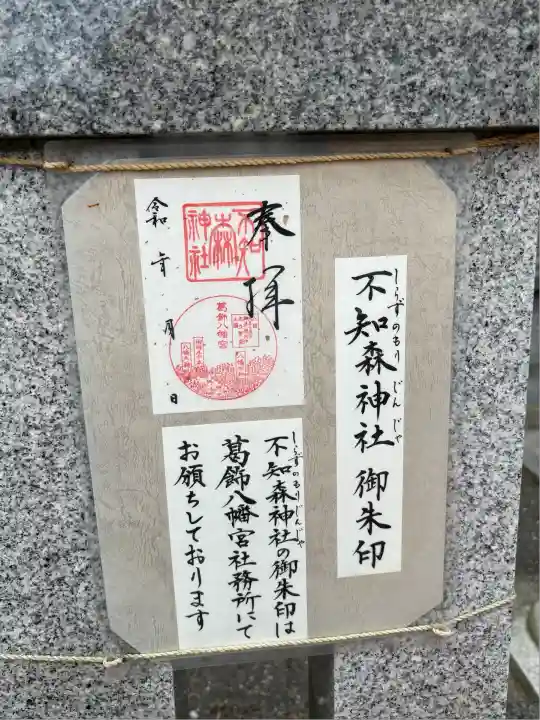 しらずのもりじんじゃ
不知森神社 御朱印
奉拝
不知森神社
葛飾八幡宮
令和 年 月 日
しらずのもりじんじゃ
不知森神社の御朱印は
葛飾八幡宮社務所にて
お願ちしております